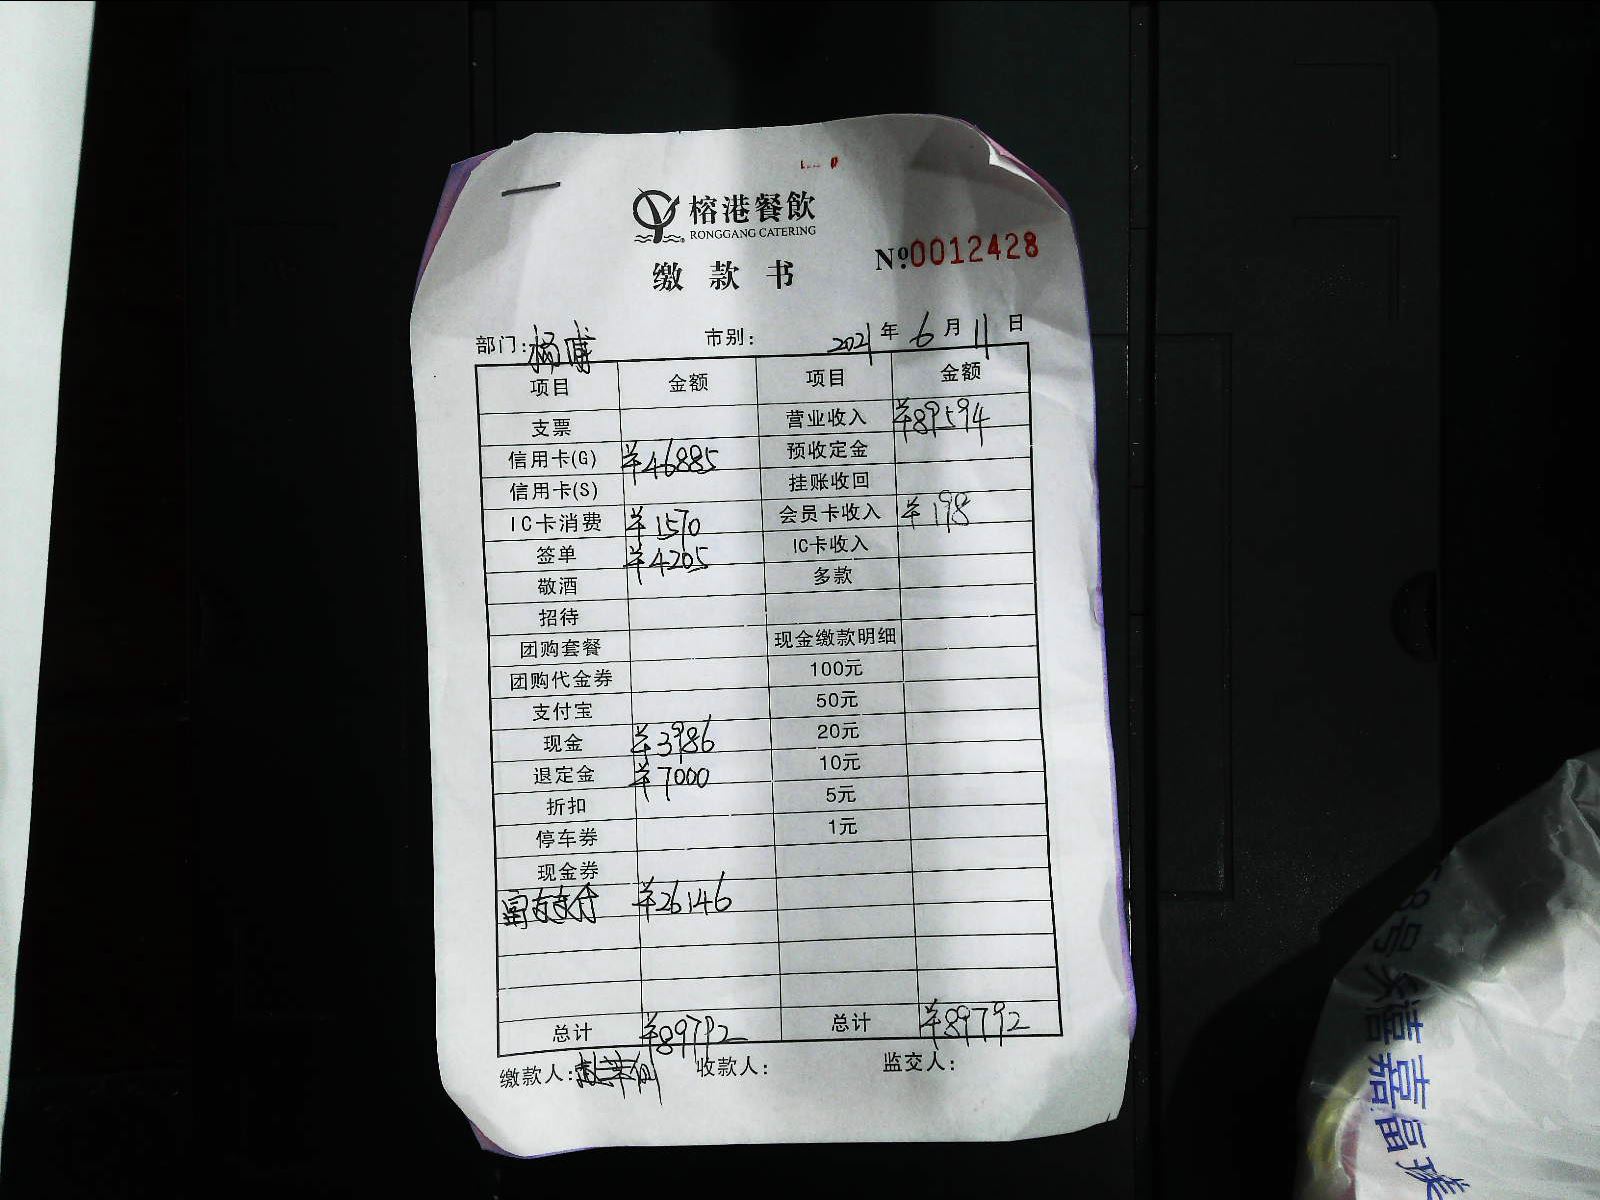 榕港餐飲
RONGGANG CATERING
缴款书
№0012428
部门:杨浦 市别: 2021年6月11日
项目 金额 项目 金额
支票 营业收入 ¥89594
信用卡(G) ¥46885 预收定金
信用卡(S) 挂账收回
IC卡消费 ¥1570 会员卡收入 ¥198
签单 ¥4205 IC卡收入
敬酒 多款
招待
团购套餐 现金缴款明细
团购代金券 100元
支付宝 50元
现金 ¥3986 20元
退定金 ¥7000 10元
折扣 5元
停车券 1元
现金券
富友支付 ¥26146
总计 ¥89792 总计 ¥89792
缴款人: 收款人: 监交人:
58号
禧嘉富